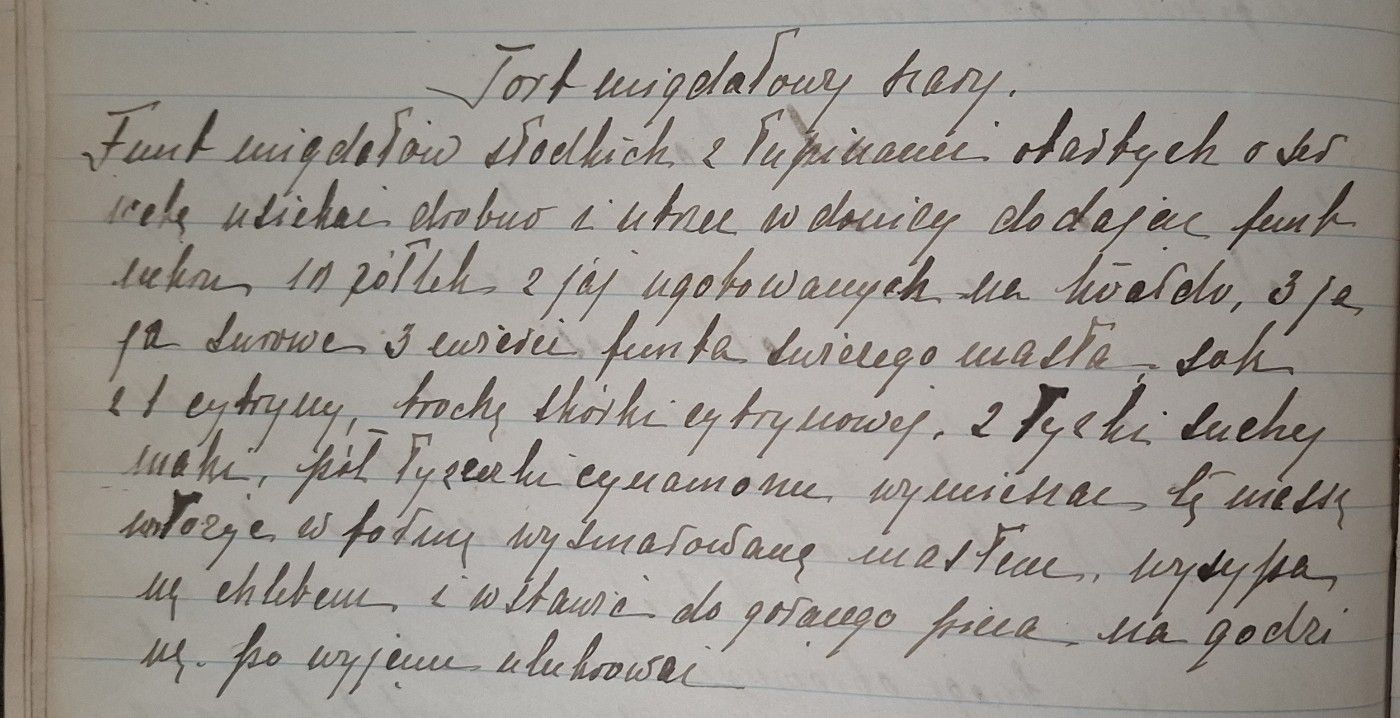 Tort migdałowy szary.
Funt migdałów słodkich z łupinami otartych o ser
wetę usiekać drobno i utrzeć w donicy dodając funt
cukru 10 żółtek z jaj ugotowanych na twardo, 3 ja
ja surowe 3 ćwierci funta świeżego masła, sok
z 1 cytryny, trochę skórki cytrynowej, 2 łyżki suchej
mąki, pół łyżeczki cynamonu wymieszać tę massę
włożyć w formę wysmarowaną masłem, wysypa
ną chlebem i wstawić do gorącego pieca na godzi
nę. po wyjęciu ulukrować